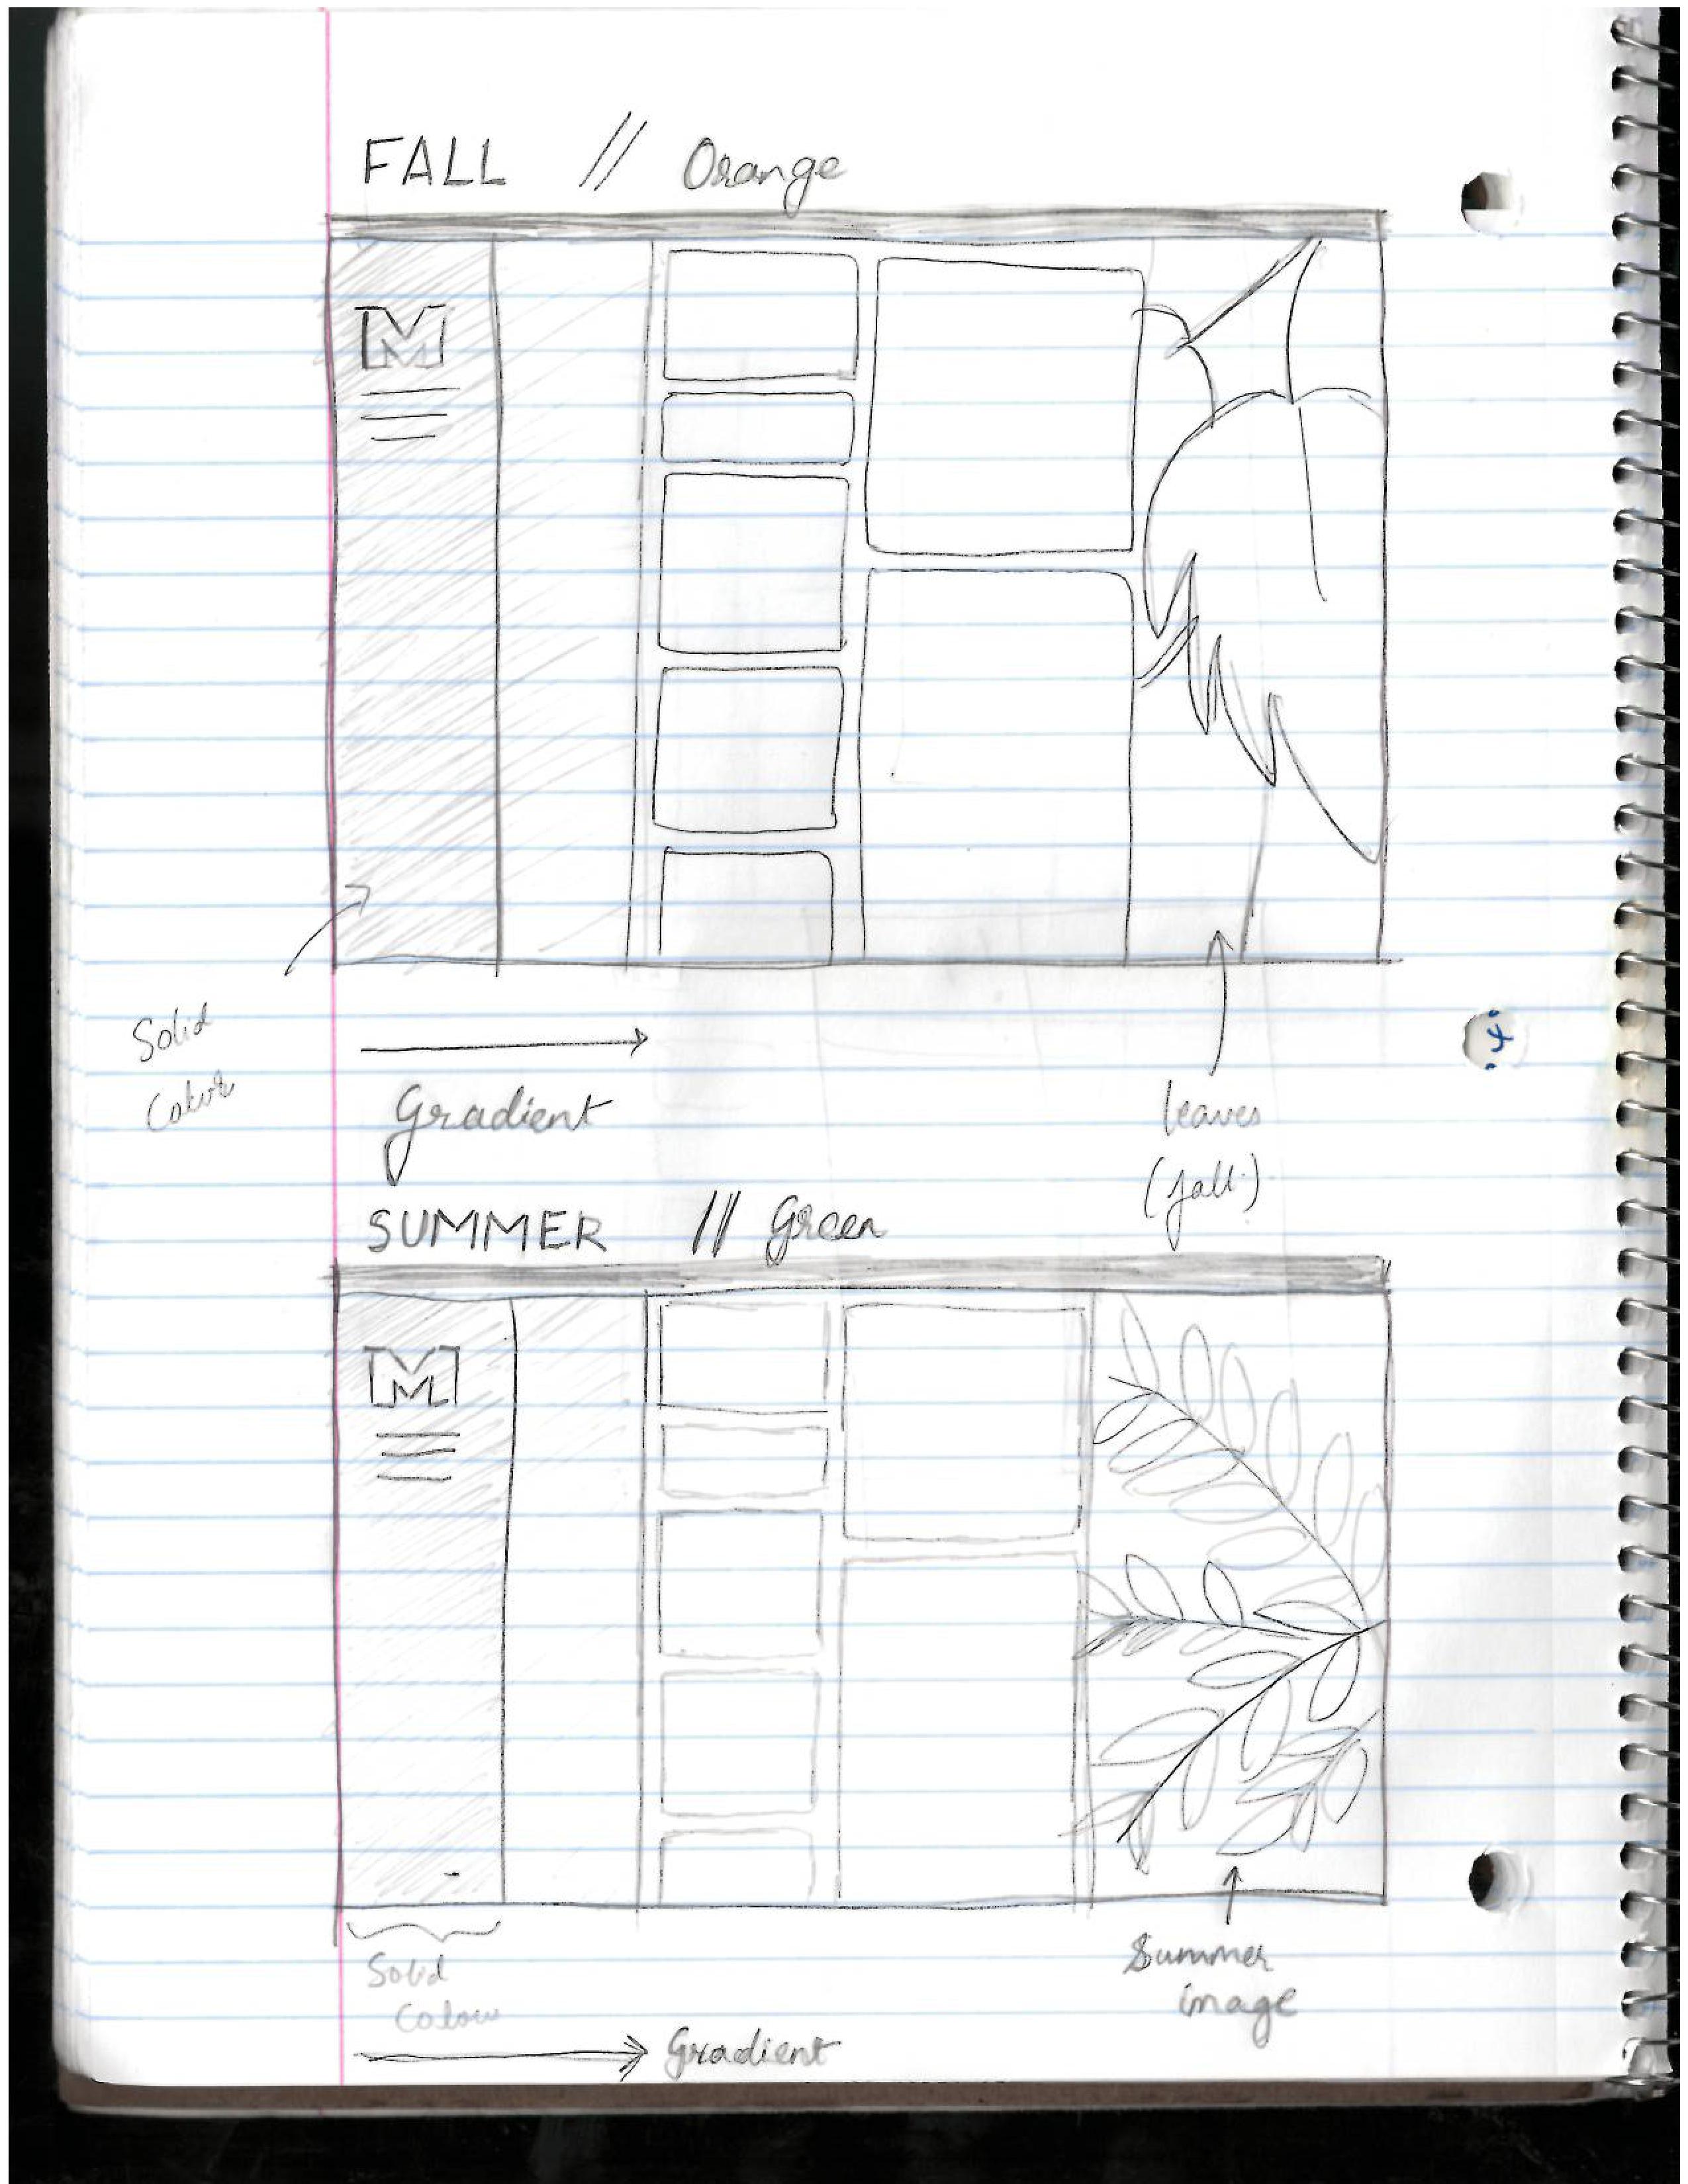 FALL // Orange
M
Solid
Color
Gradient
leaves
(fall)
SUMMER // Green
M
Solid
Colour
Summer
image
Gradient